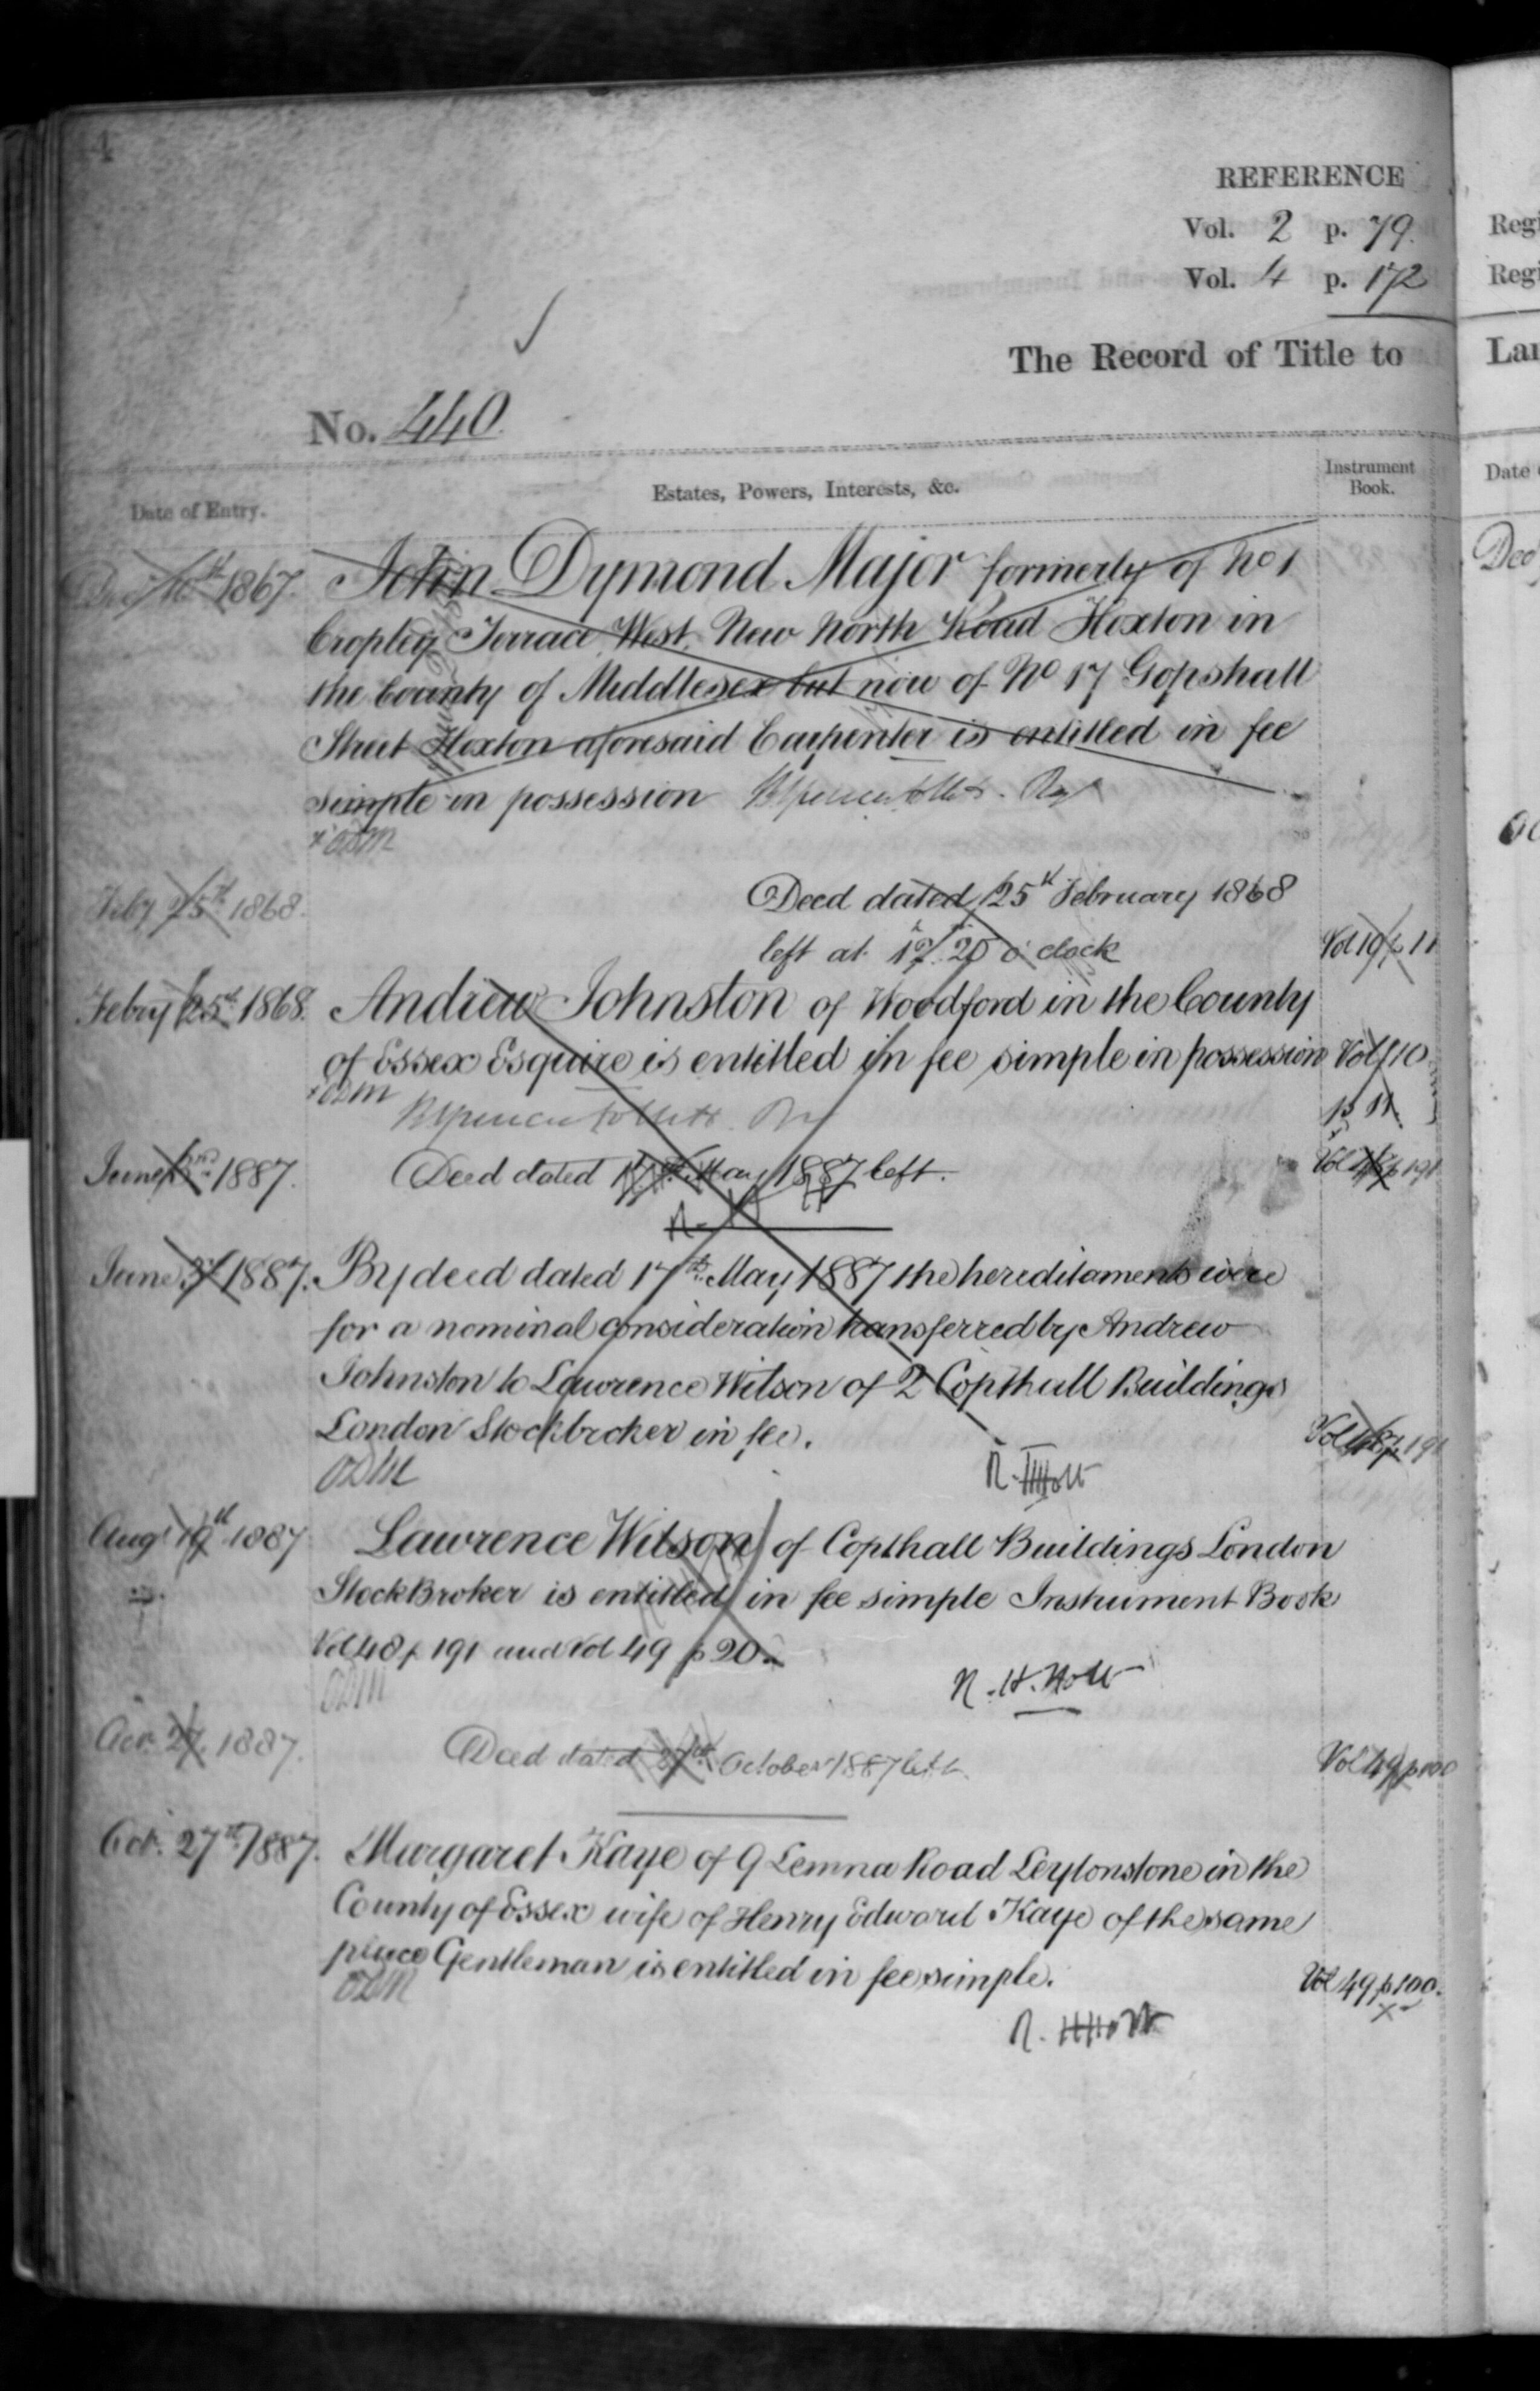 REFERENCE
Vol. 2 p. 79.
Vol. 4 p. 172
The Record of Title to
No. 440.
Date of Entry.
Estates, Powers, Interests, &c.
Instrument
Book.
Decr 10th 1867. John Dymond Major formerly of No 1
Cropley Terrace West, New North Road Hoxton in
the County of Middlesex but now of No 17 Gopshall
Street Hoxton aforesaid Carpenter is entitled in fee
simple in possession
Feby 25th 1868. Deed dated 25th February 1868
left at 12.20 o'clock Vol 10 p 11
Febry 25th 1868. Andrew Johnston of Woodford in the County
of Essex Esquire is entitled in fee simple in possession Vol 10
p 11.
June 3rd 1887. Deed dated 17th May 1887 left. Vol 48 p 191
June 3d 1887. By deed dated 17th May 1887 the hereditaments were
for a nominal consideration transferred by Andrew
Johnston to Lawrence Wilson of 2 Copthall Buildings
London Stockbroker in fee. Vol 48 p 191
R. H. Holt
Augt 19th 1887 Lawrence Wilson of Copthall Buildings London
StockBroker is entitled in fee simple Instrument Book
Vol 48 p 191 and Vol 49 p 20.
R. H. Holt
Oct. 27. 1887. Deed dated 27th October 1887 left. Vol 49 p 100
Oct. 27th 1887. Margaret Kaye of 9 Lemna Road Leytonstone in the
County of Essex wife of Henry Edward Kaye of the same
place Gentleman is entitled in fee simple. Vol 49 p 100.
R. H. Holt
Regi
Regi
Lan
Date
Dec